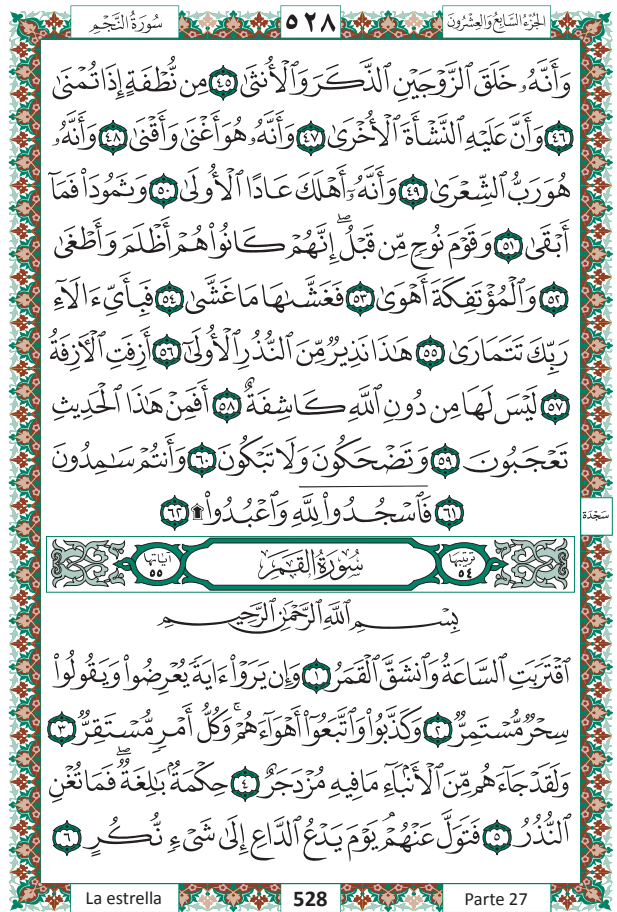 سُورَةُ النَّجْمِ ٥٢٨ الجُزْءُ السَّابِعُ وَالعِشْرُونَ
وَأَنَّهُۥ خَلَقَ ٱلزَّوْجَيْنِ ٱلذَّكَرَ وَٱلْأُنثَىٰ ٤٥ مِن نُّطْفَةٍ إِذَا تُمْنَىٰ
٤٦ وَأَنَّ عَلَيْهِ ٱلنَّشْأَةَ ٱلْأُخْرَىٰ ٤٧ وَأَنَّهُۥ هُوَ أَغْنَىٰ وَأَقْنَىٰ ٤٨ وَأَنَّهُۥ
هُوَ رَبُّ ٱلشِّعْرَىٰ ٤٩ وَأَنَّهُۥٓ أَهْلَكَ عَادًا ٱلْأُولَىٰ ٥٠ وَثَمُودَا۟ فَمَآ
أَبْقَىٰ ٥١ وَقَوْمَ نُوحٍ مِّن قَبْلُ ۖ إِنَّهُمْ كَانُوا۟ هُمْ أَظْلَمَ وَأَطْغَىٰ
٥٢ وَٱلْمُؤْتَفِكَةَ أَهْوَىٰ ٥٣ فَغَشَّىٰهَا مَا غَشَّىٰ ٥٤ فَبِأَىِّ ءَالَآءِ
رَبِّكَ تَتَمَارَىٰ ٥٥ هَـٰذَا نَذِيرٌ مِّنَ ٱلنُّذُرِ ٱلْأُولَىٰٓ ٥٦ أَزِفَتِ ٱلْـَٔازِفَةُ
٥٧ لَيْسَ لَهَا مِن دُونِ ٱللَّهِ كَاشِفَةٌ ٥٨ أَفَمِنْ هَـٰذَا ٱلْحَدِيثِ
تَعْجَبُونَ ٥٩ وَتَضْحَكُونَ وَلَا تَبْكُونَ ٦٠ وَأَنتُمْ سَـٰمِدُونَ
٦١ فَٱسْجُدُوا۟ لِلَّهِ وَٱعْبُدُوا۟ ۩ ٦٢
سَجْدَة
تَرْتِيبُهَا ٥٤ سُورَةُ القَمَرِ آيَاتُهَا ٥٥
بِسْمِ ٱللَّهِ ٱلرَّحْمَـٰنِ ٱلرَّحِيمِ
ٱقْتَرَبَتِ ٱلسَّاعَةُ وَٱنشَقَّ ٱلْقَمَرُ ١ وَإِن يَرَوْا۟ ءَايَةً يُعْرِضُوا۟ وَيَقُولُوا۟
سِحْرٌ مُّسْتَمِرٌّ ٢ وَكَذَّبُوا۟ وَٱتَّبَعُوٓا۟ أَهْوَآءَهُمْ ۚ وَكُلُّ أَمْرٍ مُّسْتَقِرٌّ ٣
وَلَقَدْ جَآءَهُم مِّنَ ٱلْأَنۢبَآءِ مَا فِيهِ مُزْدَجَرٌ ٤ حِكْمَةٌۢ بَـٰلِغَةٌ ۖ فَمَا تُغْنِ
ٱلنُّذُرُ ٥ فَتَوَلَّ عَنْهُمْ ۘ يَوْمَ يَدْعُ ٱلدَّاعِ إِلَىٰ شَىْءٍ نُّكُرٍ ٦
La estrella 528 Parte 27